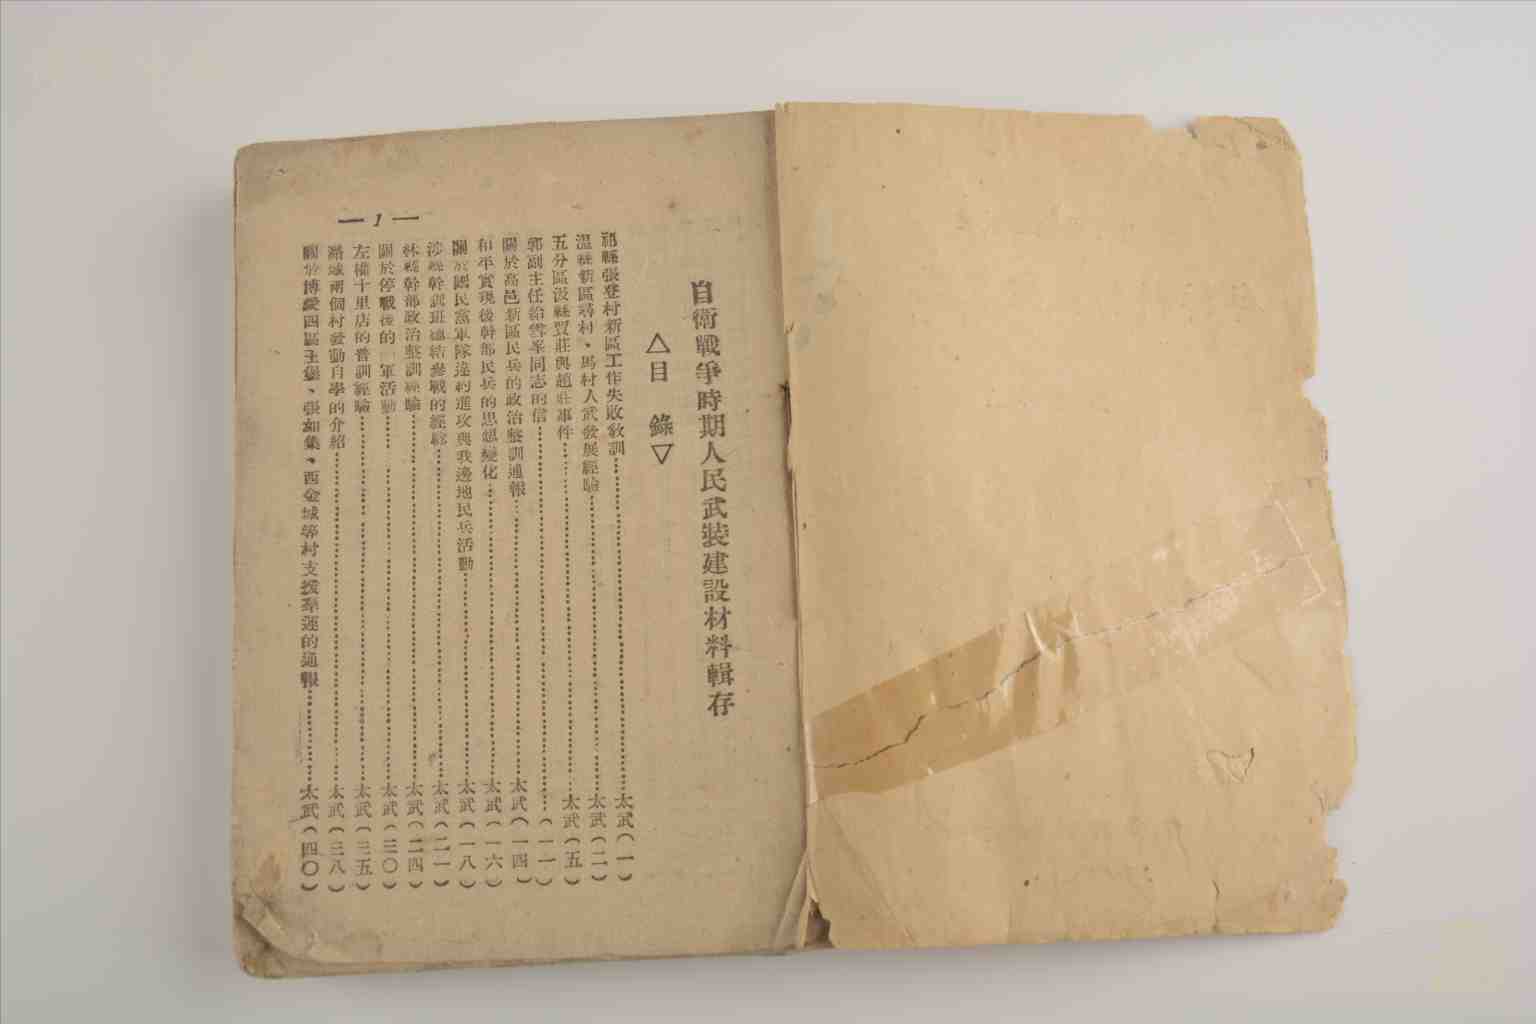 自衛戰爭時期人民武裝建設材料輯存
△目 錄▽
祁縣張登村新區工作失敗教訓……太武(一)
溫縣新區尋村、馬村人武發展經驗……太武(二)
五分區汲縣賈莊與趙莊事件……太武(五)
郭副主任給雪峯同志的信……(一一)
關於高邑新區民兵的政治整訓通報……太武(一四)
和平實現後幹部民兵的思想變化……太武(一六)
關於國民黨軍隊違約進攻與我邊地民兵活動……太武(一八)
涉縣幹訓班總結參戰的經驗……太武(二一)
林縣幹部政治整訓經驗……太武(二四)
關於停戰後的 軍活動……太武(三〇)
左權十里店的普訓經驗……太武(三五)
潞城兩個村發動自學的介紹……太武(三八)
關於博愛四區王堡、張如集、西金城等村支援羣運的通報……太武(四〇)
— 1 —